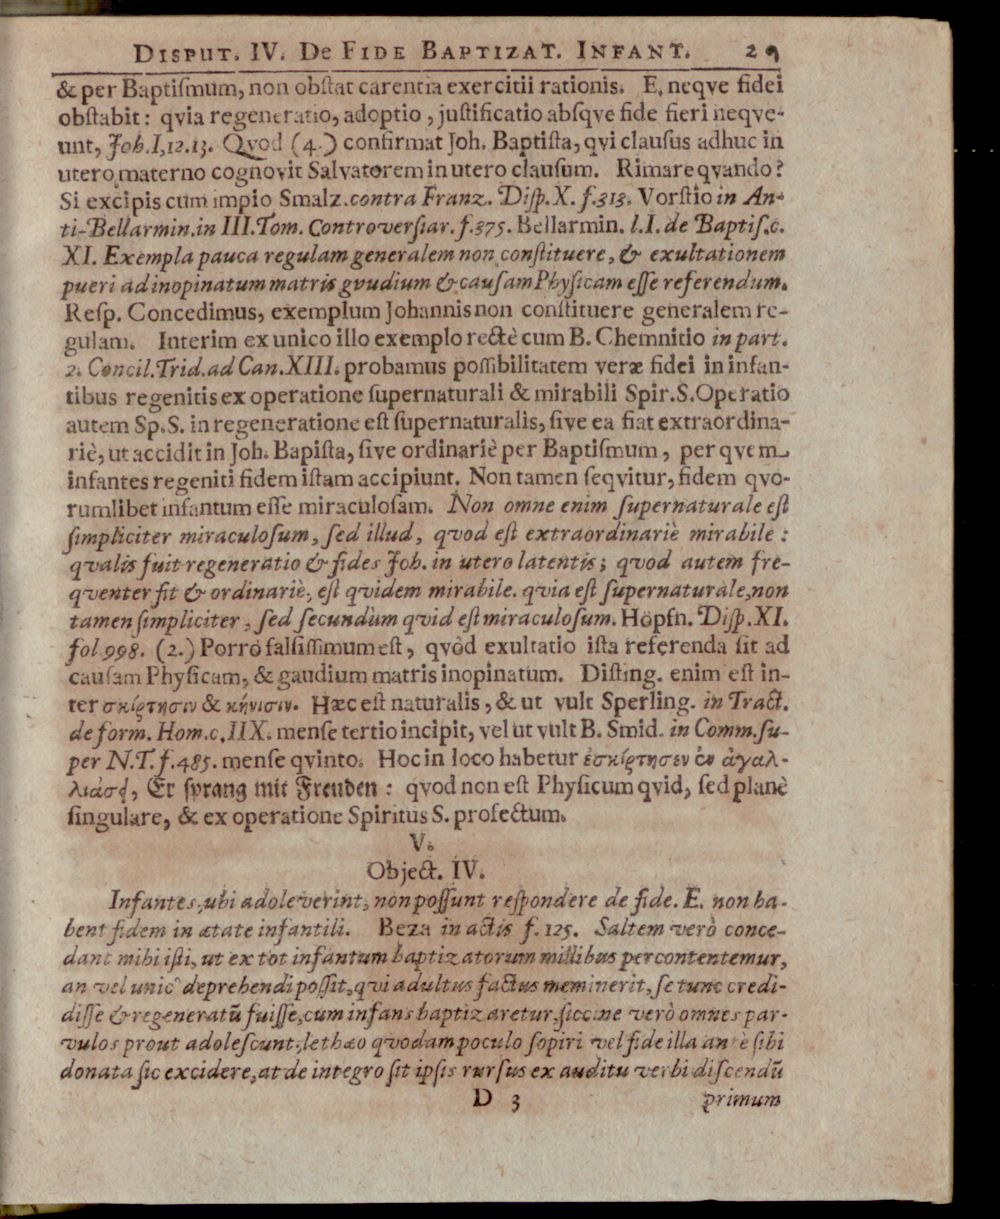 DISPUT. IV. De FIDE BAPTIZAT. INFANT. 29
& per Baptiſmum, non obſtat carentia exercitii rationis. E. neqve fidei
obſtabit: qvia regeneratio, adoptio, juſtificatio abſqve fide fieri neqve-
unt, Joh. I, 12. 13. Qvod (4.) confirmat Joh. Baptiſta, qvi clauſus adhuc in
utero materno cognovit Salvatorem in utero clauſum. Rimare qvando?
Si excipis cum impio Smalz. contra Franz. Diſp. X. f. 313. Vorſtio in An-
ti-Bellarmin. in III. Tom. Controverſiar. f. 375. Bellarmin. l. I. de Baptiſ. c.
XI. Exempla pauca regulam generalem non conſtituere, & exultationem
pueri ad inopinatum matris gvudium & cauſam Phyſicam eſſe referendum.
Reſp. Concedimus, exemplum Johannis non conſtituere generalem re-
gulam. Interim ex unico illo exemplo rectè cum B. Chemnitio in part.
2. Concil. Trid. ad Can. XIII. probamus poſſibilitatem veræ fidei in infan-
tibus regenitis ex operatione ſupernaturali & mirabili Spir. S. Operatio
autem Sp. S. in regeneratione eſt ſupernaturalis, ſive ea fiat extraordina-
riè, ut accidit in Joh. Bapiſta, ſive ordinariè per Baptiſmum, per qvem
infantes regeniti fidem iſtam accipiunt. Non tamen ſeqvitur, fidem qvo-
rumlibet infantum eſſe miraculoſam. Non omne enim ſupernaturale eſt
ſimpliciter miraculoſum, ſed illud, qvod eſt extraordinariè mirabile:
qvalis fuit regeneratio & fides Joh. in utero latentis; qvod autem fre-
qventer fit & ordinariè, eſt qvidem mirabile. qvia eſt ſupernaturale, non
tamen ſimpliciter, ſed ſecundùm qvid eſt miraculoſum. Höpfn. Diſp. XI.
fol. 998. (2.) Porrò falſiſſimum eſt, qvòd exultatio iſta referenda ſit ad
cauſam Phyſicam, & gaudium matris inopinatum. Diſting. enim eſt in-
ter σκίρτησιν & κήνισιν. Hæc eſt naturalis, & ut vult Sperling. in Tract.
de form. Hom. c. IIX. menſe tertio incipit, vel ut vult B. Smid. in Comm. ſu-
per N. T. f. 485. menſe qvinto. Hoc in loco habetur ἐσκίρτησεν ἐν ἀγαλ-
λιάσϛ, Er ſprang mit Freuden: qvod non eſt Phyſicum qvid, ſed planè
ſingulare, & ex operatione Spiritus S. profectum.
V.
Object. IV.
Infantes, ubi adoleverint, non poſſunt reſpondere de fide. E. non ha-
bent fidem in ætate infantili. Beza in actis f. 125. Saltem verò conce-
dant mihi iſti, ut ex tot infantum baptizatorum millibus percontentemur,
an vel unic deprehendi poſſit, qvi adultus factus meminerit, ſe tunc credi-
diſſe & regeneratũ fuiſſe, cum infans baptizaretur, ſiccine verò omnes par-
vulos prout adoleſcunt, lethæo qvodam poculo ſopiri vel fide illa antè ſibi
donata ſic excidere, at de integro ſit ipſis rurſus ex auditu verbi diſcendũ
D 3 primum